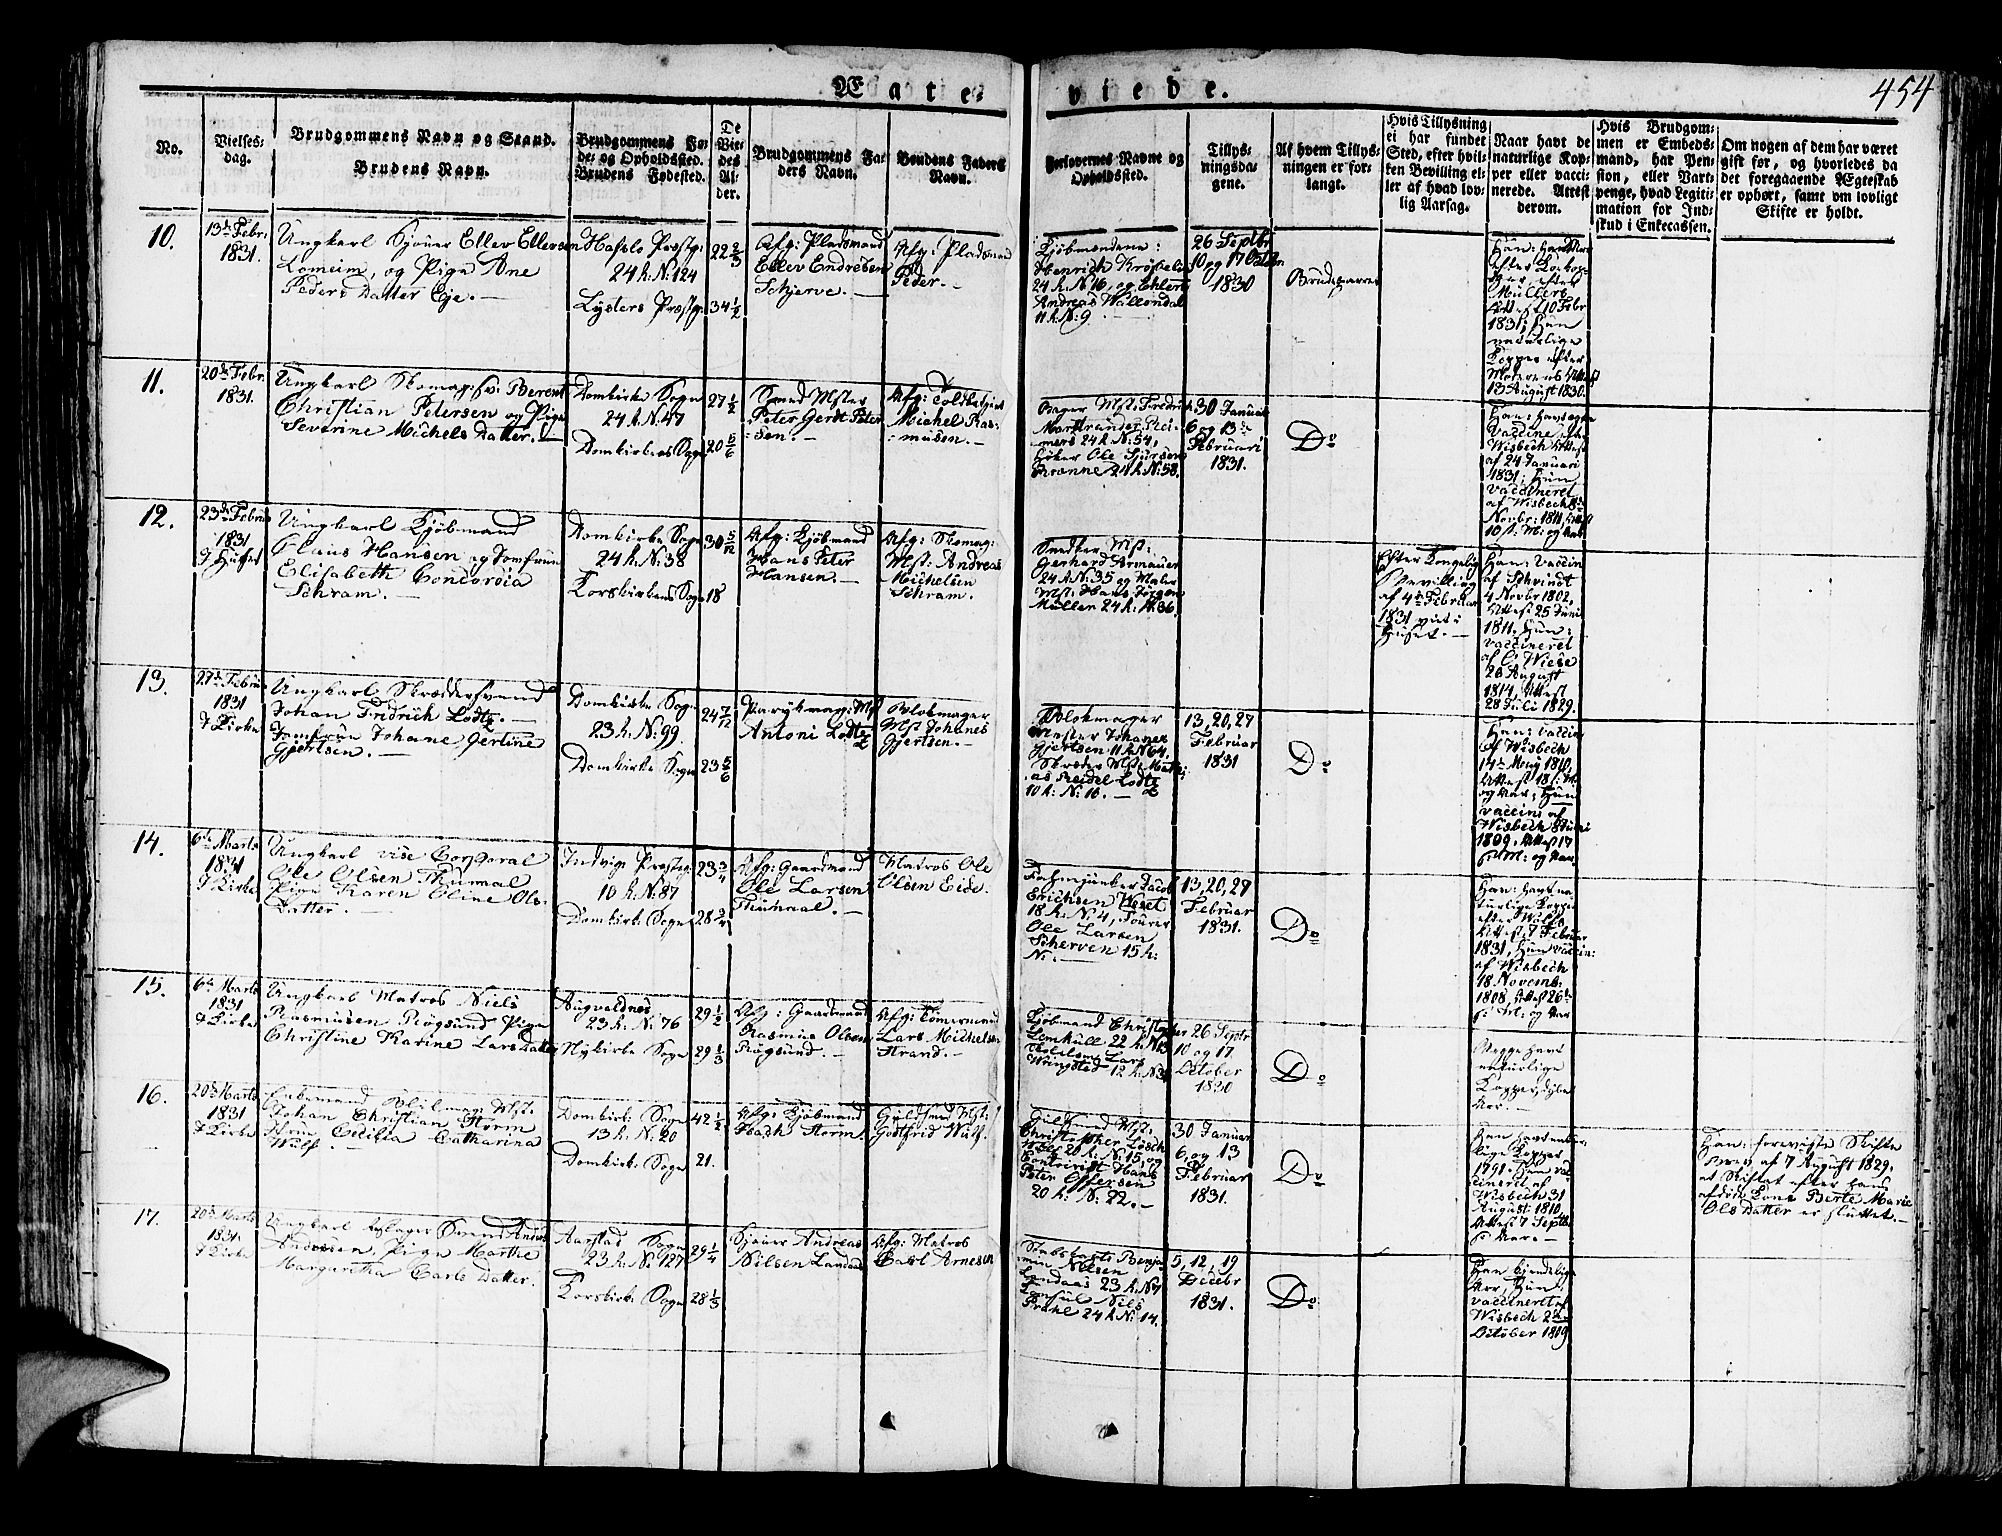 Ægte-
viede.
454
No.
Vielses-
dag.
Brudgommens Navn og Stand.
Brudens Navn.
Brudgommens Fø-
de- og Opholdssted.
Brudens Fødested.
De
Vie-
des
Al-
der.
Brudgommens Fa-
ders Navn.
Brudens Faders
Navn.
Forlovernes Navne og
Opholdssted.
Tillys-
ningsda-
gene.
Af hvem Tillys-
ningen er for-
langt.
Hvis Tillysning
ei har fundet
Sted, efter hvil-
ken Bevilling el-
ler af hvad lov-
lig Aarsag.
Naar havt de
naturlige Kop-
per eller vacci-
nerede. Attest
derom.
Hvis Brudgom-
men er Embeds-
mand, har Pen-
sion, eller Vart-
penge, hvad Legiti-
mation for Ind-
skud i Enkecassen.
Om nogen af dem har været
gift for, og hvorledes da
det foregaaende Ægteskab
er ophørt, samt om lovligt
Skifte er holdt.
10.
13de Febr.
1831.
Ungkarl Ellev Ellersen
Lomeim, og Pige Ane
Peders Datter Eje.
Hafslo Præstg:
24 R. N: 124
Lysters Præstg:
22 2/3
34 1/2
Afg: Pladsmand
Ellev Endresen
Schjerve.
Afg: Pladsmand
Peder.
Kjøbmændene:
24 R. N: 16, og Ehlert
Andreas Wallendal
11 R. N: 9.
26 Septbr
10 og 17 Octbr
1830
Brudeparret
Attest 10 Febr
1831; Hun
naturlige
Kopper efter
Moderens Attest
13 August 1830.
11.
20de Febr.
1831.
Ungkarl Skomag: Sv: Berent
Christian Petersen og Pige
Severine Michels Datter.
Domkirke Sogn
24 R. N: 47
Domkirkens Sogn
27 1/2
20 5/6
Smed Mster
Peter Gerdt Peter
sen.
Afg: Toldbetjent
Michel Ras-
musen.
Bager Mst: Fredrich
mers 24 R. N: 54,
Høker Ole Sjursen
24 R. N: 58.
30 Januar
6 og 13de
Februari
1831.
Do
Vaccine af
Wisbech Attest
af 24 Januari
1831; Hun
vaccineret
af Wisbech 8de
Novbr: 1811, Attest
10 s: M: og Aar
12.
23de Febru
1831
I Huset
Ungkarl Kjøbmand
Claus Hansen og Jomfrue
Elisabeth Concordia
Schram.
Domkirke Sogn
24 R. N: 38
Korskirkens Sogn
30 5/12
18
Afg: Kjøbmand
Hans Peter
Hansen.
Afg: Skomag:
Mst: Andreas
Michelsen
Schram.
Snedker Mst:
Gerhard Armauer
24 R. N: 35 og Maler
Mst: Hans Jørgen
Müller 24 R: N: 36.
Efter Kongelig
Bevilling
af 4de Februar
1831 viet i
Huset.
Han: Vaccin
af Schvindt
4 Novbr 1802,
Attest 25 Juni
1811. Hun:
vaccineret
af C: Wiese
26 August
1814, Attest
28 Juli 1829.
13.
27de Febru
1831
I Kirke
Ungkarl Skræddersvend
Johan Fridrich Lodtz.
Jomfrue Johane Gertine
Gjertsen.
Domkirke Sog.
23 R. N: 99
Domkirke Sogn
24 7/12
23 5/6
Parykmag: Mst
Antoni Lodtz
Blokmager
Mst Johanes
Gjertsen.
Blokmager
Mester Johanes
Gjertsen 11 R N 64,
Skræder Mst: Mathi
as Reidel Lodtz
10 R: N: 16.
13, 20, 27
Februar
1831
Do
Han: vaccin
af Wisbech
14de May 1810,
Attest 18 s: M:
og Aar; Hun
vaccine af
Wisbech 8 Juni
1809, Attest 17
s: M: og Aar
14.
6de Marts
1831
I Kirke
Ungkarl vise Corporal
Ole Olsen Thunal
Pige Karen Oline Ols
Datter.
Indvigs Præstg:
10 R. N: 87
Domkirke Sogn
23 3/4
28 2/4
Afg: Gaardmand
Ole Larsen
Thuhnal.
Matros Ole
Olsen Eide.
Fahnejunker Jacob
Erichsen Weset
18 R. N: 4, Fourer
Ole Larsen
Scherven 15 R:
N:
13, 20, 27
Februar
1831.
Do
Han: havt na
turlige Kopper
Attest 7 Februar
1831, Hun vaccin:
af Wisbech
18 Novemb:
1808, Attest 26de
s: M: og Aar
15.
6de Marts
1831
I Kirke
Ungkarl Matros Niels
Rasmusen Røgsund Pige
Christine Karine Lars Datter
Augvaldnes
23 R. N: 76
Nykirke Sogn
29 1/2
29 1/3
Afg: Gaardmand
Rasmus Olsen
Røgsund.
Afg: Tømermand
Lars Michelsen
Strand.
Kjøbmand Christopher
Lemkull 22 R. N:13
Lars
Wringsted 12 R. N:
26 Septr
10 og 17
October
1830
Do
Begge havt
naturlige
Kopper, dybe
Aar.
16.
20de Marts
1831
I Kirke
Enkemand Mst:
Johan Christian Storm
Jfrue Cecilia Catharina
Wulf
Domkirke Sogn
13 R. N: 20
Domkirke Sogn
42 1/2
21.
Afg: Kjøbmand
Hach Storm.
Guldsmed Mst:
Godtfrid Wulf.
Guldsmed Mst:
Christopher Losch
Wulf 20 R. N: 15, og
Contorist Hans
Peter Offersen
20 R: N: 22.
30 Januar
6, og 13
Februar
1831.
Do
Han havt natur-
lige Kopper
1791. Hun vac
cineret af
Wisbech 31
August 1810,
Attest 7 Septbr
s: Aar.
Han: foreviste Skifte
Brev af 7 August 1829,
at Skiftet efter hans
afdøde Kone Berte Marie
Olsdatter er sluttet.
17.
20de Marts
1831.
I Kirke
Ungkarl Svend Anders
Andersen, Pige Marthe
Margaretha Carls Datter.
Aarstad Sogn
23 R. N: 127
Korskirke Sogn
29 1/4
28 1/3
Andreas
Nilsen Landaas
Afg: Matros
Carl Arnesen
Benja
min Nilsen
Landaas 23 R. N:
Consul Nils
Prahl 24 R. N: 14.
5, 12, 19
Decebr
1831.
Do
Han kjendelige
Aar, Hun
vaccineret af
Wisbech 2de
October 1819